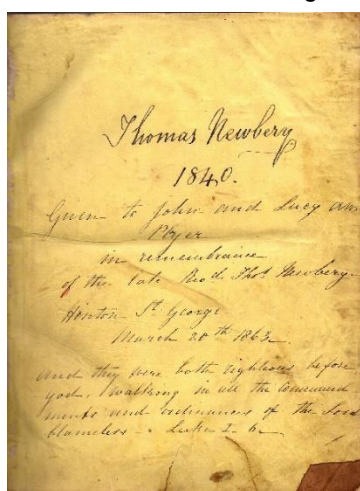 Thomas Newbery
1840.
Given to John and Lucy Ann
Pryer
in remembrance
of the late Revd. Thos. Newbery
Hinton St George
March 20th 1863
And they were both righteous before
god, walking in all the command
ments and ordinances of the Lord
blameless - Luke I. 6